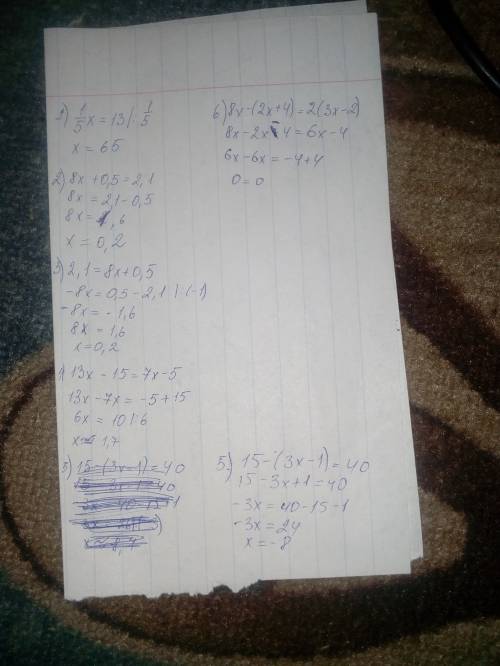 1) 1/5 x = 13 | · 1/5
x = 65
2) 8x + 0,5 = 2,1
8x = 2,1 - 0,5
8x = 1,6
x = 0,2
3) 2,1 = 8x + 0,5
-8x = 0,5 - 2,1 | · (-1)
-8x = -1,6
8x = 1,6
x = 0,2
13x - 15 = 7x - 5
13x - 7x = -5 + 15
6x = 10 | : 6
x = 1,7
5) 15 - (3x - 1) = 40
5.) 15 - (3x - 1) = 40
15 - 3x + 1 = 40
-3x = 40 - 15 - 1
-3x = 24
x = -8
6) 8x - (2x + 4) = 2(3x - 2)
8x - 2x - 4 = 6x - 4
6x - 6x = -4 + 4
0 = 0